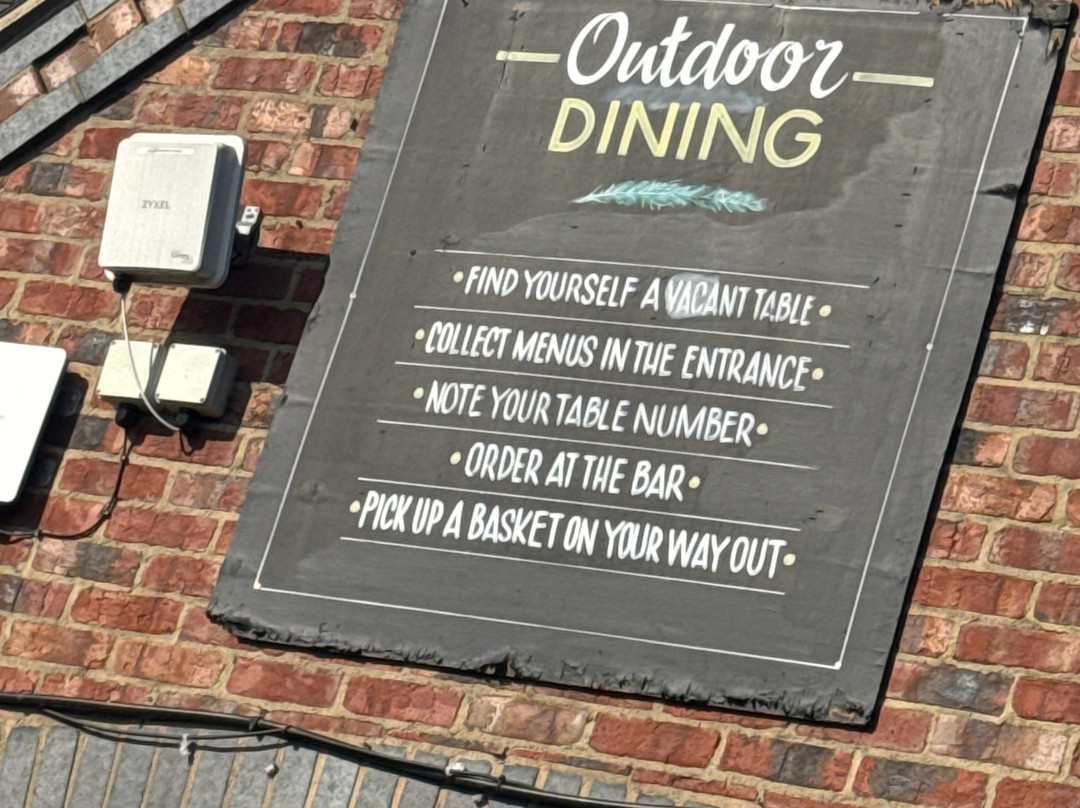 Outdoor
DINING
ZYXEL
•FIND YOURSELF A VACANT TABLE•
•COLLECT MENUS IN THE ENTRANCE•
•NOTE YOUR TABLE NUMBER•
•ORDER AT THE BAR•
•PICK UP A BASKET ON YOUR WAY OUT•